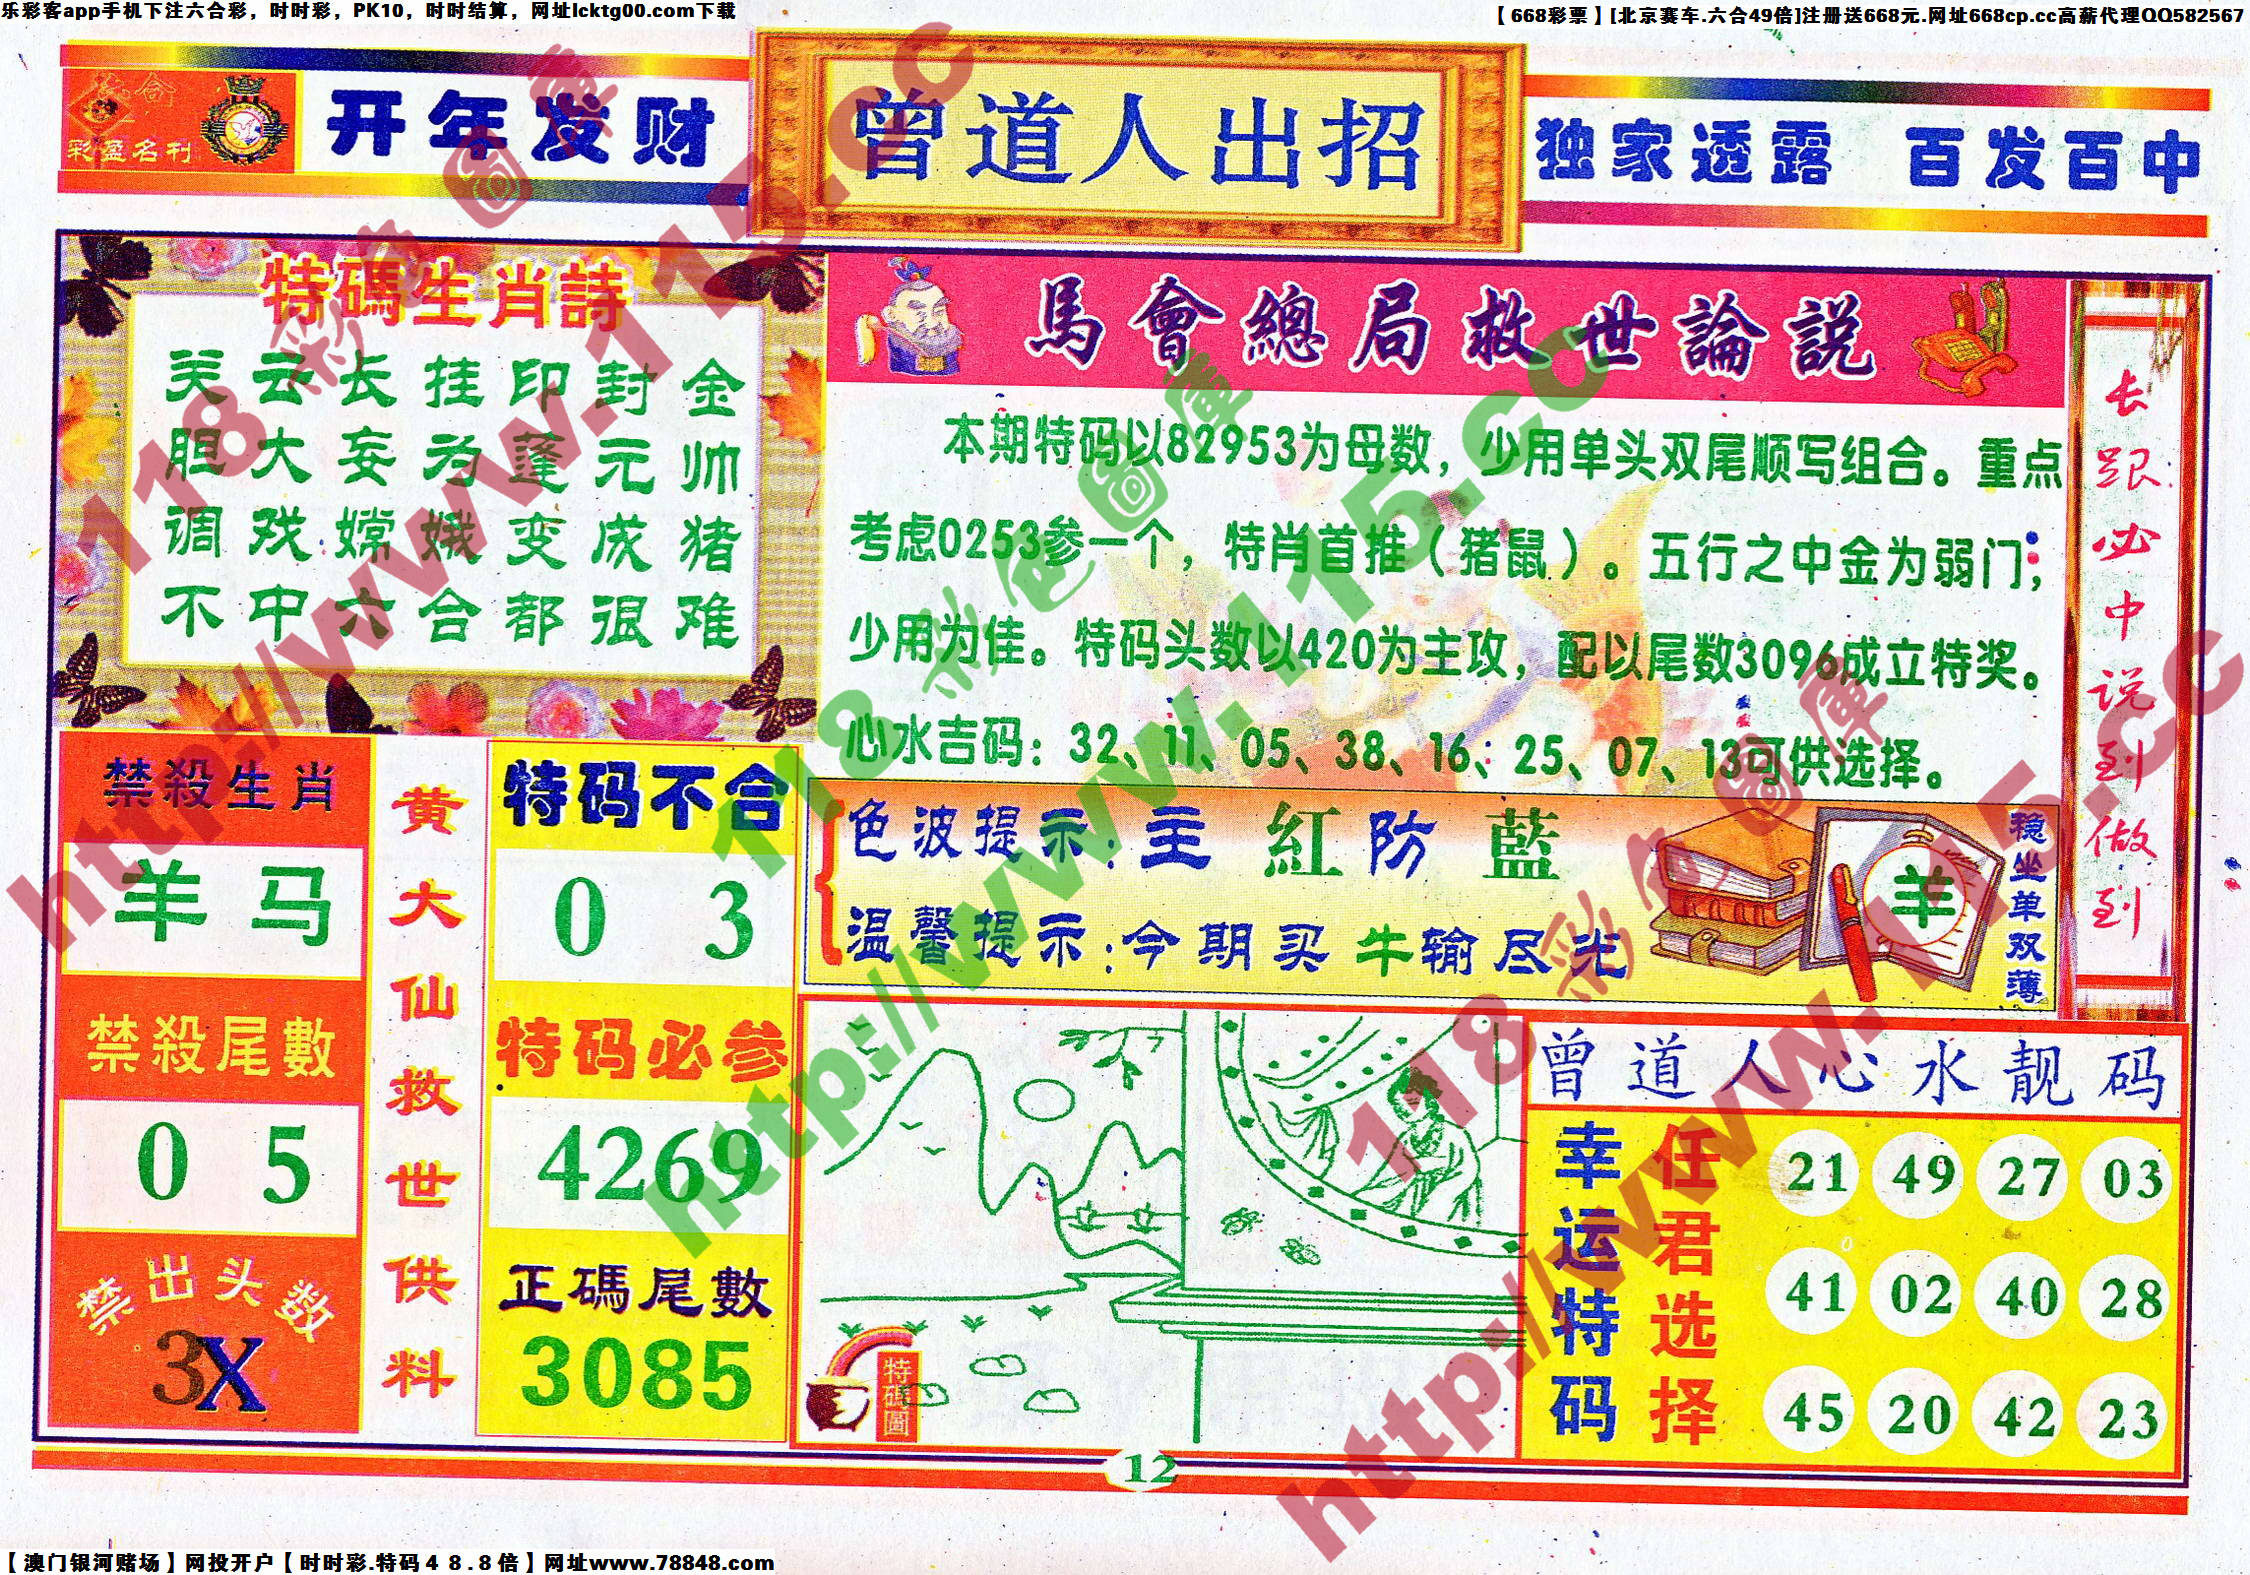 乐彩客app手机下注六合彩，时时彩，PK10，时时结算，网址lcktg00.com下载
【668彩票】[北京赛车.六合49倍]注册送668元.网址668cp.cc高薪代理QQ582567
彩盈名刊
开年发财
曾道人出招
独家透露 百发百中
特碼生肖詩
关云长挂印封金
胆大妄为蓬元帅
调戏嫦娥变成猪
不中六合都很难
馬會總局救世論説
本期特码以82953为母数，少用单头双尾顺写组合。重点
考虑0253参一个，特肖首推（猪鼠）。五行之中金为弱门；
少用为佳。特码头数以420为主攻，配以尾数3096成立特奖。
心水吉码：32、11、05、38、16；25、07、13可供选择。
长跟必中说到做到
禁殺生肖
羊 马
禁殺尾數
0 5
禁出头数
3X
黄大仙救世供料
特码不合
0 3
特码必参
4269
正碼尾數
3085
色波提示：主 紅 防 藍
温馨提示：今期买牛输尽光
羊
稳坐单双薄
特碼圖
曾道人心水靓码
幸运特码
任君选择
21 49 27 03
41 02 40 28
45 20 42 23
12
【澳门银河赌场】网投开户【时时彩.特码48.8倍】网址www.78848.com
118彩色圖庫
http://www.115.cc
118彩色圖庫
http://www.115.cc
118彩色圖庫
http://www.115.cc